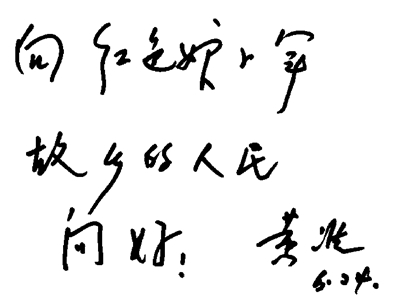 向红色娘子军
故乡的人民
问好！ 黄准
6.24.